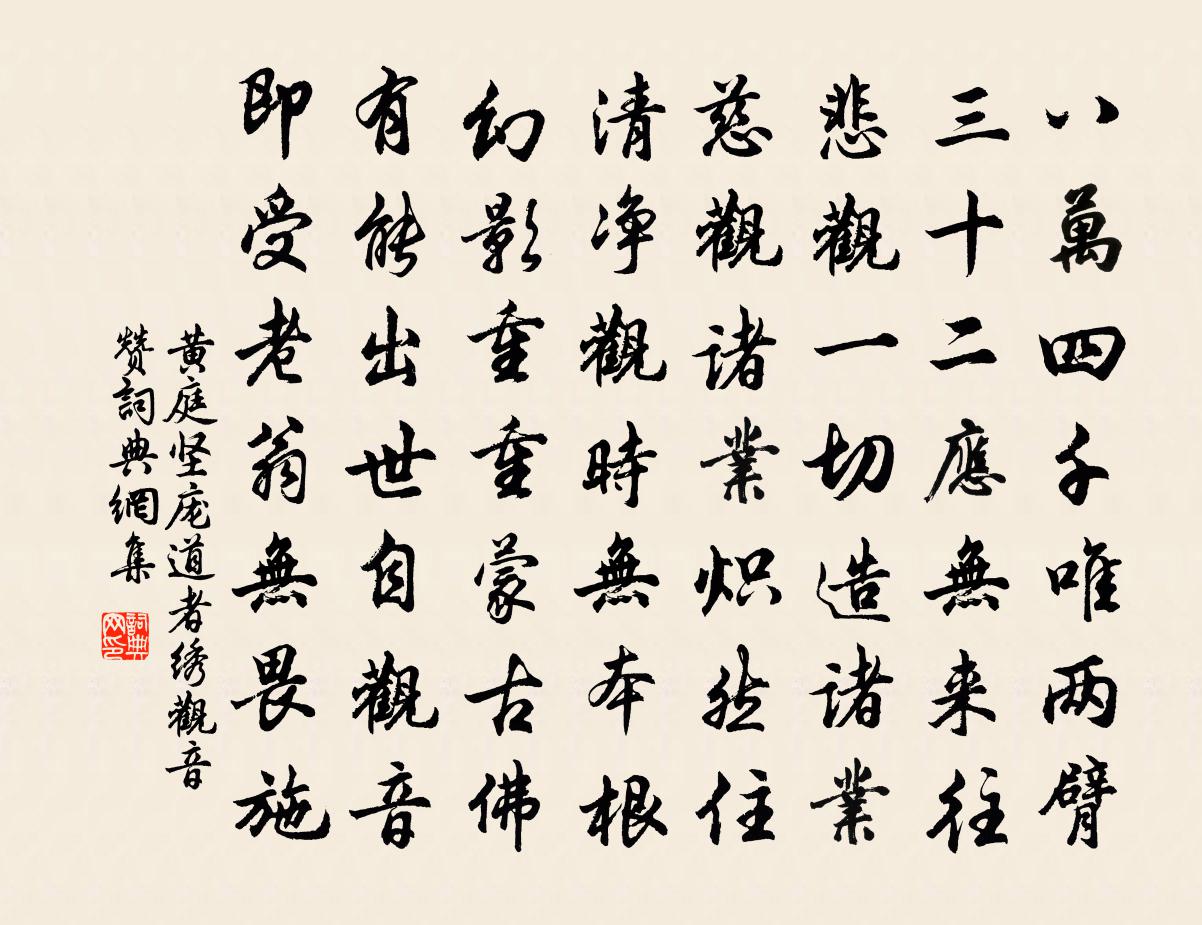 八萬四千唯两臂
三十二應無来往
悲觀一切造诸業
慈觀诸業炽然住
清净觀時無本根
幻影重重蒙古佛
有能出世自觀音
即受老翁無畏施
黄庭坚庞道者绣觀音
赞詞典網集
詞典网印